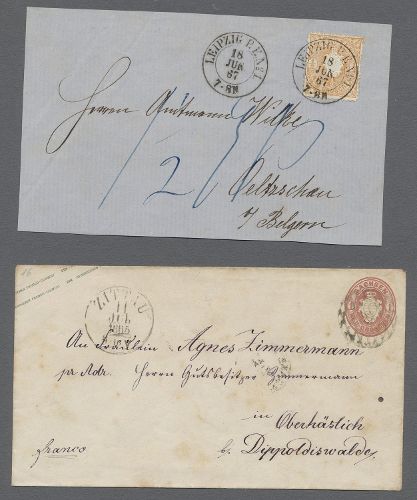 LEIPZIG P.E.
18
JUN
67
7-8N
LEIPZIG P.E.
18
JUN
67
7-8N
Herrn Amtmann Wilke
Oeltzschau
b/ Belgern
16
ZITTAU
11
JUL
SACHSEN
An Fräulein Agnes Zimmermann
pr Adr. Herrn Gutsbesitzer Zimmermann
in Oberhäslich
b. Dippoldiswalde
franco